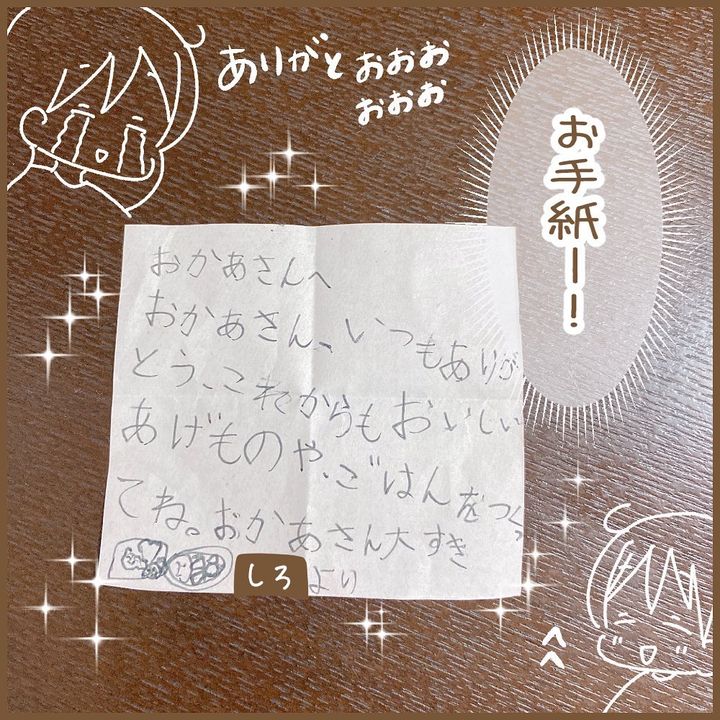 ありがとおおお
おおお
お手紙ー!
おかあさんへ
おかあさん、いつもありが
とう、これからもおいしい
あげものや、ごはんをつくっ
てね。おかあさん大すき
しろより